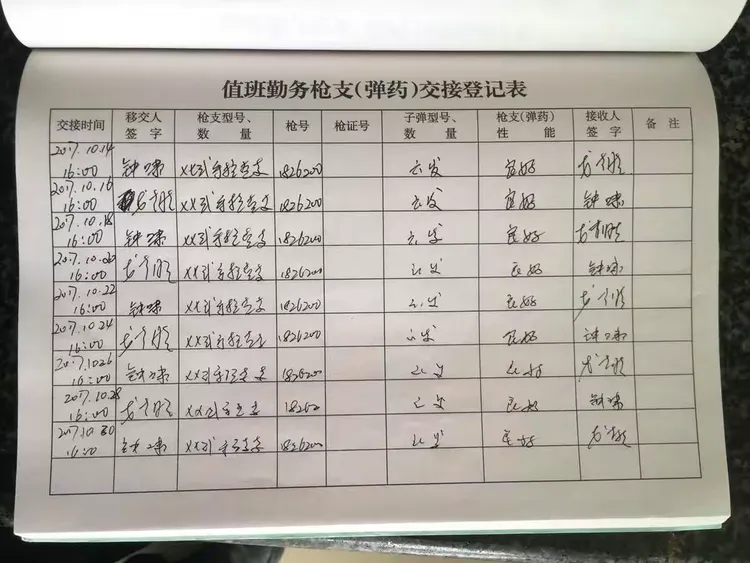 值班勤务枪支（弹药）交接登记表
交接时间 移交人签字 枪支型号、数量 枪号 枪证号 子弹型号、数量 枪支（弹药）性能 接收人签字 备注
2017.10.14 16:00 钟 XX式手枪壹支 1826200 发 良好
2017.10.16 16:00 XX式手枪壹支 1826200 发 良好 钟
2017.10.18 16:00 钟 XX式手枪壹支 1826200 发 良好
2017.10.20 16:00 XX式手枪壹支 1826200 发 良好 钟
2017.10.22 16:00 钟 XX式手枪壹支 1826200 发 良好
2017.10.24 16:00 XX式手枪壹支 1826200 发 良好 钟
2017.10.26 16:00 钟 XX式手枪壹支 1826200 发 良好
2017.10.28 16:00 XX式手枪壹支 发 良好 钟
2017.10.30 钟 XX式手枪壹支 1826200 发 良好